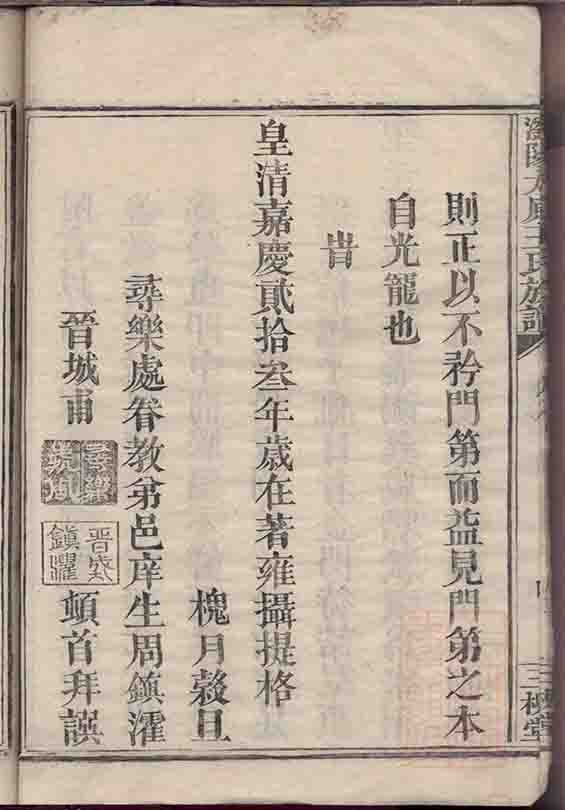 則正以不矜門第而益見門第之本
自光寵也
旹
皇清嘉慶貳拾叁年歲在著雍攝提格
槐月穀旦
尋樂處眷教弟邑庠生周鎮濯
晉城甫
頓首拜譔
王氏族譜
三槐堂